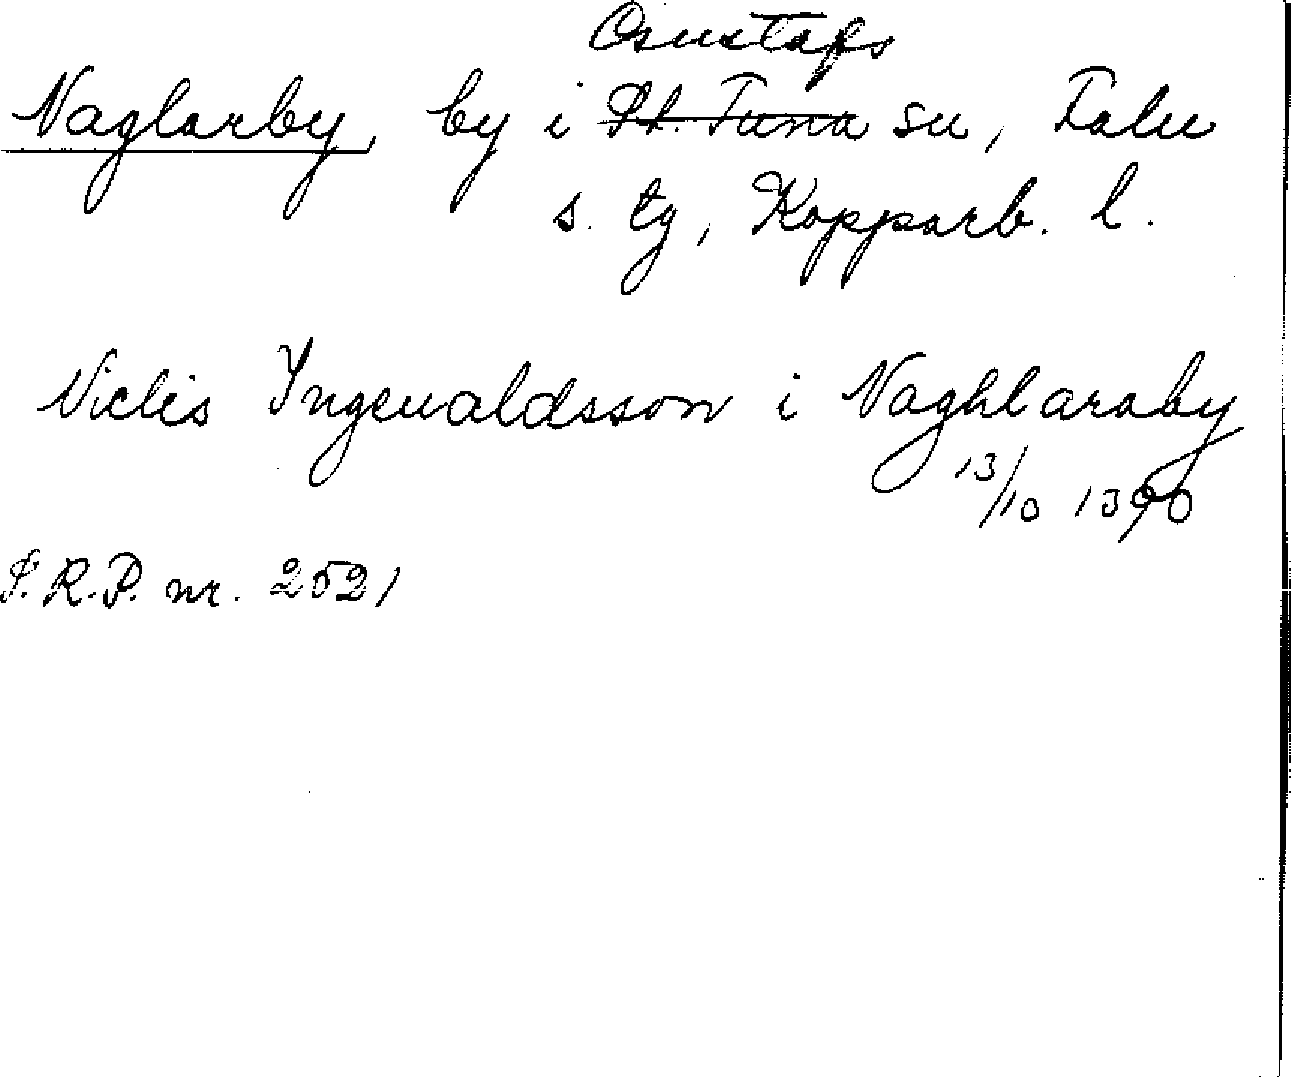 Gustafs
Naglarby, by i St. Tuna sn, Falu
s. tg, Kopparb. l.
Niclis Yngeualdsson i Naghlaraby
13/10 1390
S.R.P. nr. 2521